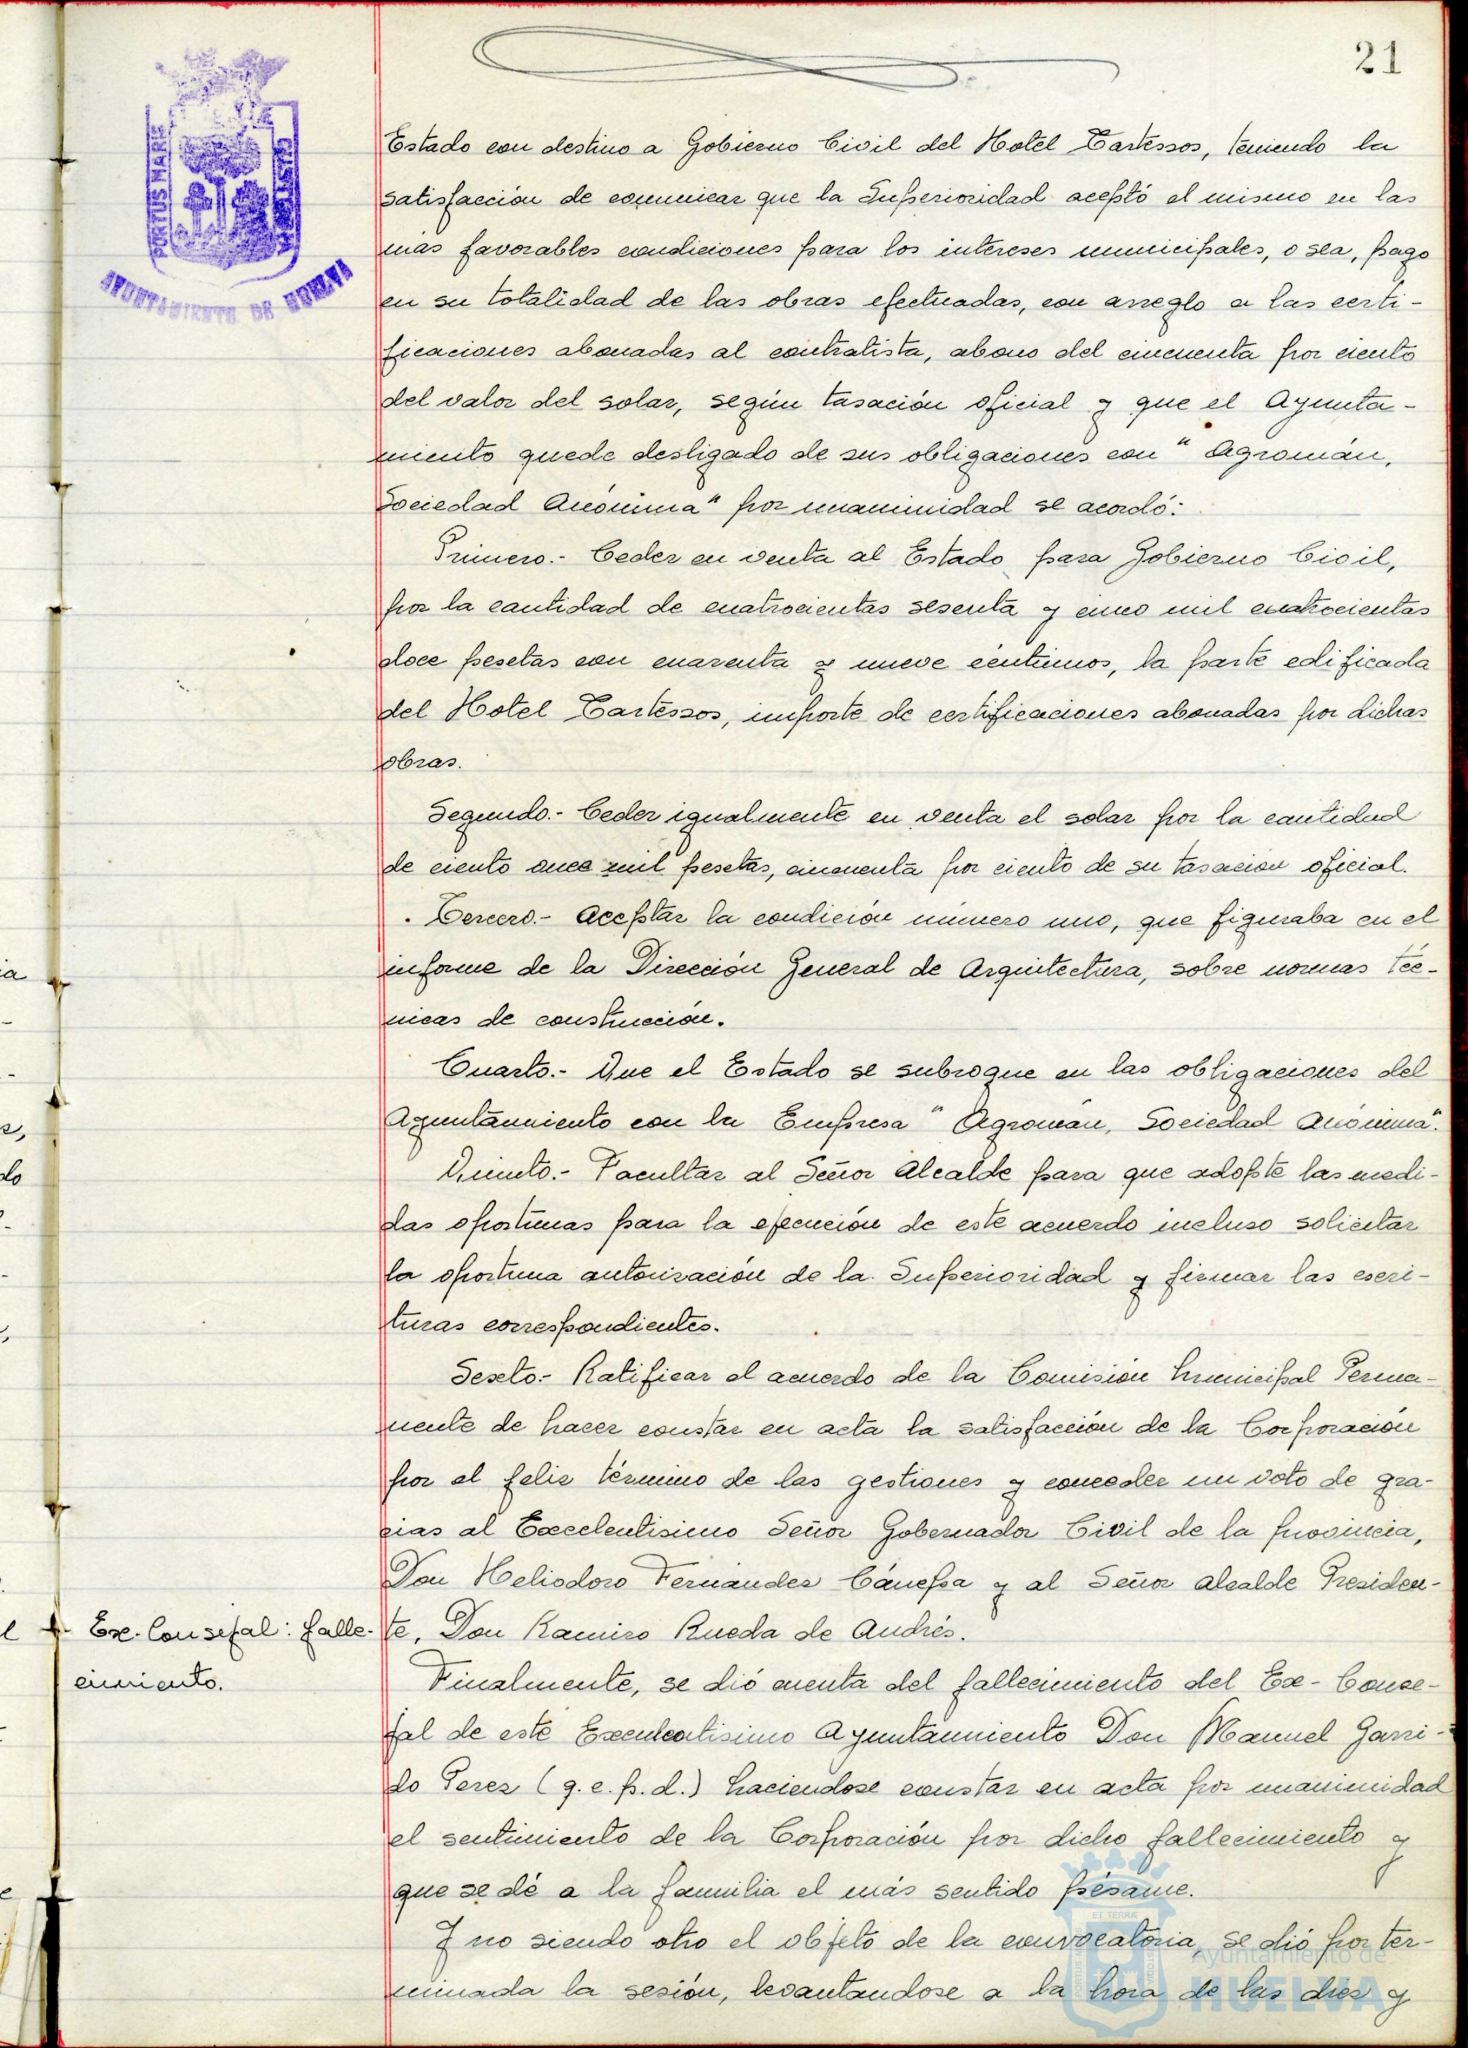 21
PORTUS MARIS
ET TERRÆ CUSTODIA
AYUNTAMIENTO DE HUELVA
Estado con destino a Gobierno Civil del Hotel Tartessos, teniendo la
satisfacción de comunicar que la Superioridad aceptó el mismo en las
más favorables condiciones para los intereses municipales, o sea, pago
en su totalidad de las obras efectuadas, con arreglo a las certi-
ficaciones abonadas al contratista, abono del cincuenta por ciento
del valor del solar, según tasación oficial y que el Ayunta-
miento quede desligado de sus obligaciones con "Agromán,
Sociedad Anónima" por unanimidad se acordó:
Primero.- Ceder en venta al Estado para Gobierno Civil,
por la cantidad de cuatrocientas sesenta y cinco mil cuatrocientas
doce pesetas con cuarenta y nueve céntimos, la parte edificada
del Hotel Tartessos, importe de certificaciones abonadas por dichas
obras.
Segundo.- Ceder igualmente en venta el solar por la cantidad
de ciento once mil pesetas, cincuenta por ciento de su tasación oficial.
Tercero.- Aceptar la condición número uno, que figuraba en el
informe de la Dirección General de Arquitectura, sobre normas téc-
nicas de construcción.
Cuarto.- Que el Estado se subrogue en las obligaciones del
Ayuntamiento con la Empresa "Agromán, Sociedad Anónima".
Quinto.- Facultar al Señor Alcalde para que adopte las medi-
das oportunas para la ejecución de este acuerdo incluso solicitar
la oportuna autorización de la Superioridad y firmar las escri-
turas correspondientes.
Sexto.- Ratificar el acuerdo de la Comisión Municipal Perma-
nente de hacer constar en acta la satisfacción de la Corporación
por el feliz término de las gestiones y conceder un voto de gra-
cias al Excelentísimo Señor Gobernador Civil de la provincia,
Don Heliodoro Fernández Cánepa y al Señor Alcalde Presiden-
te, Don Ramiro Rueda de Andrés.
Ex-Consejal: falle-
cimiento.
Finalmente, se dió cuenta del fallecimiento del Ex-Conse-
jal de este Excelentisimo Ayuntamiento Don Manuel Garri-
do Perez (q.e.p.d.) haciendose constar en acta por unanimidad
el sentimiento de la Corporación por dicho fallecimiento y
que se dé a la familia el más sentido pésame.
Y no siendo otro el objeto de la convocatoria, se dió por ter-
minada la sesión, levantandose a la hora de las diez y
Ayuntamiento de
HUELVA